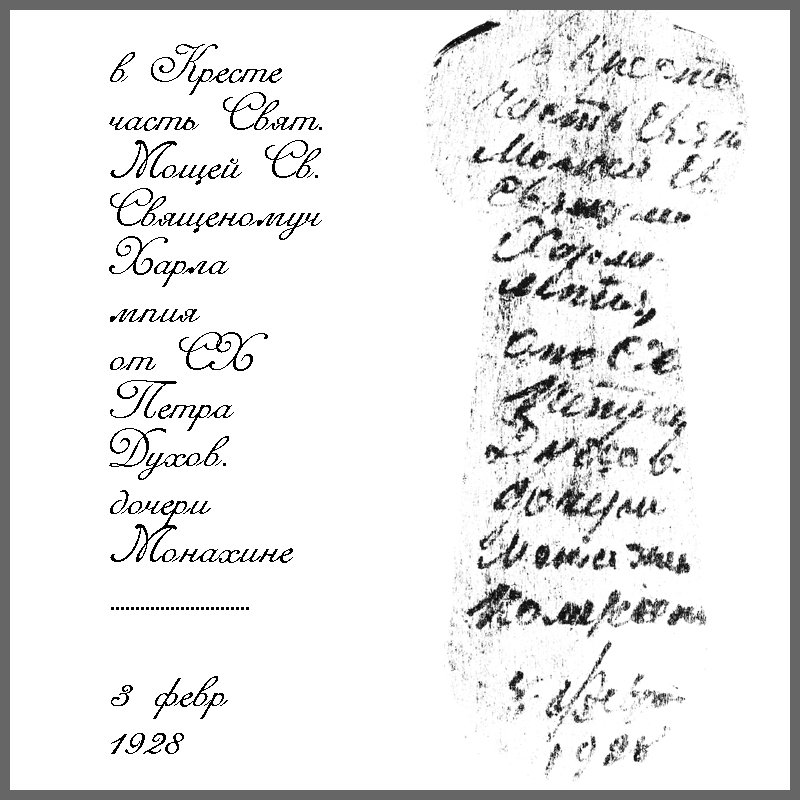 в Кресте
часть Свят.
Мощей Св.
Священомуч
Харла
мпия
от СХ
Петра
Духов.
дочери
Монахине
3 февр
1928
в Кресте
часть Свят
Мощей Св.
Харла
мпия
от СХ
Петра
Духов.
дочери
Монахинѣ
3 февр
1928